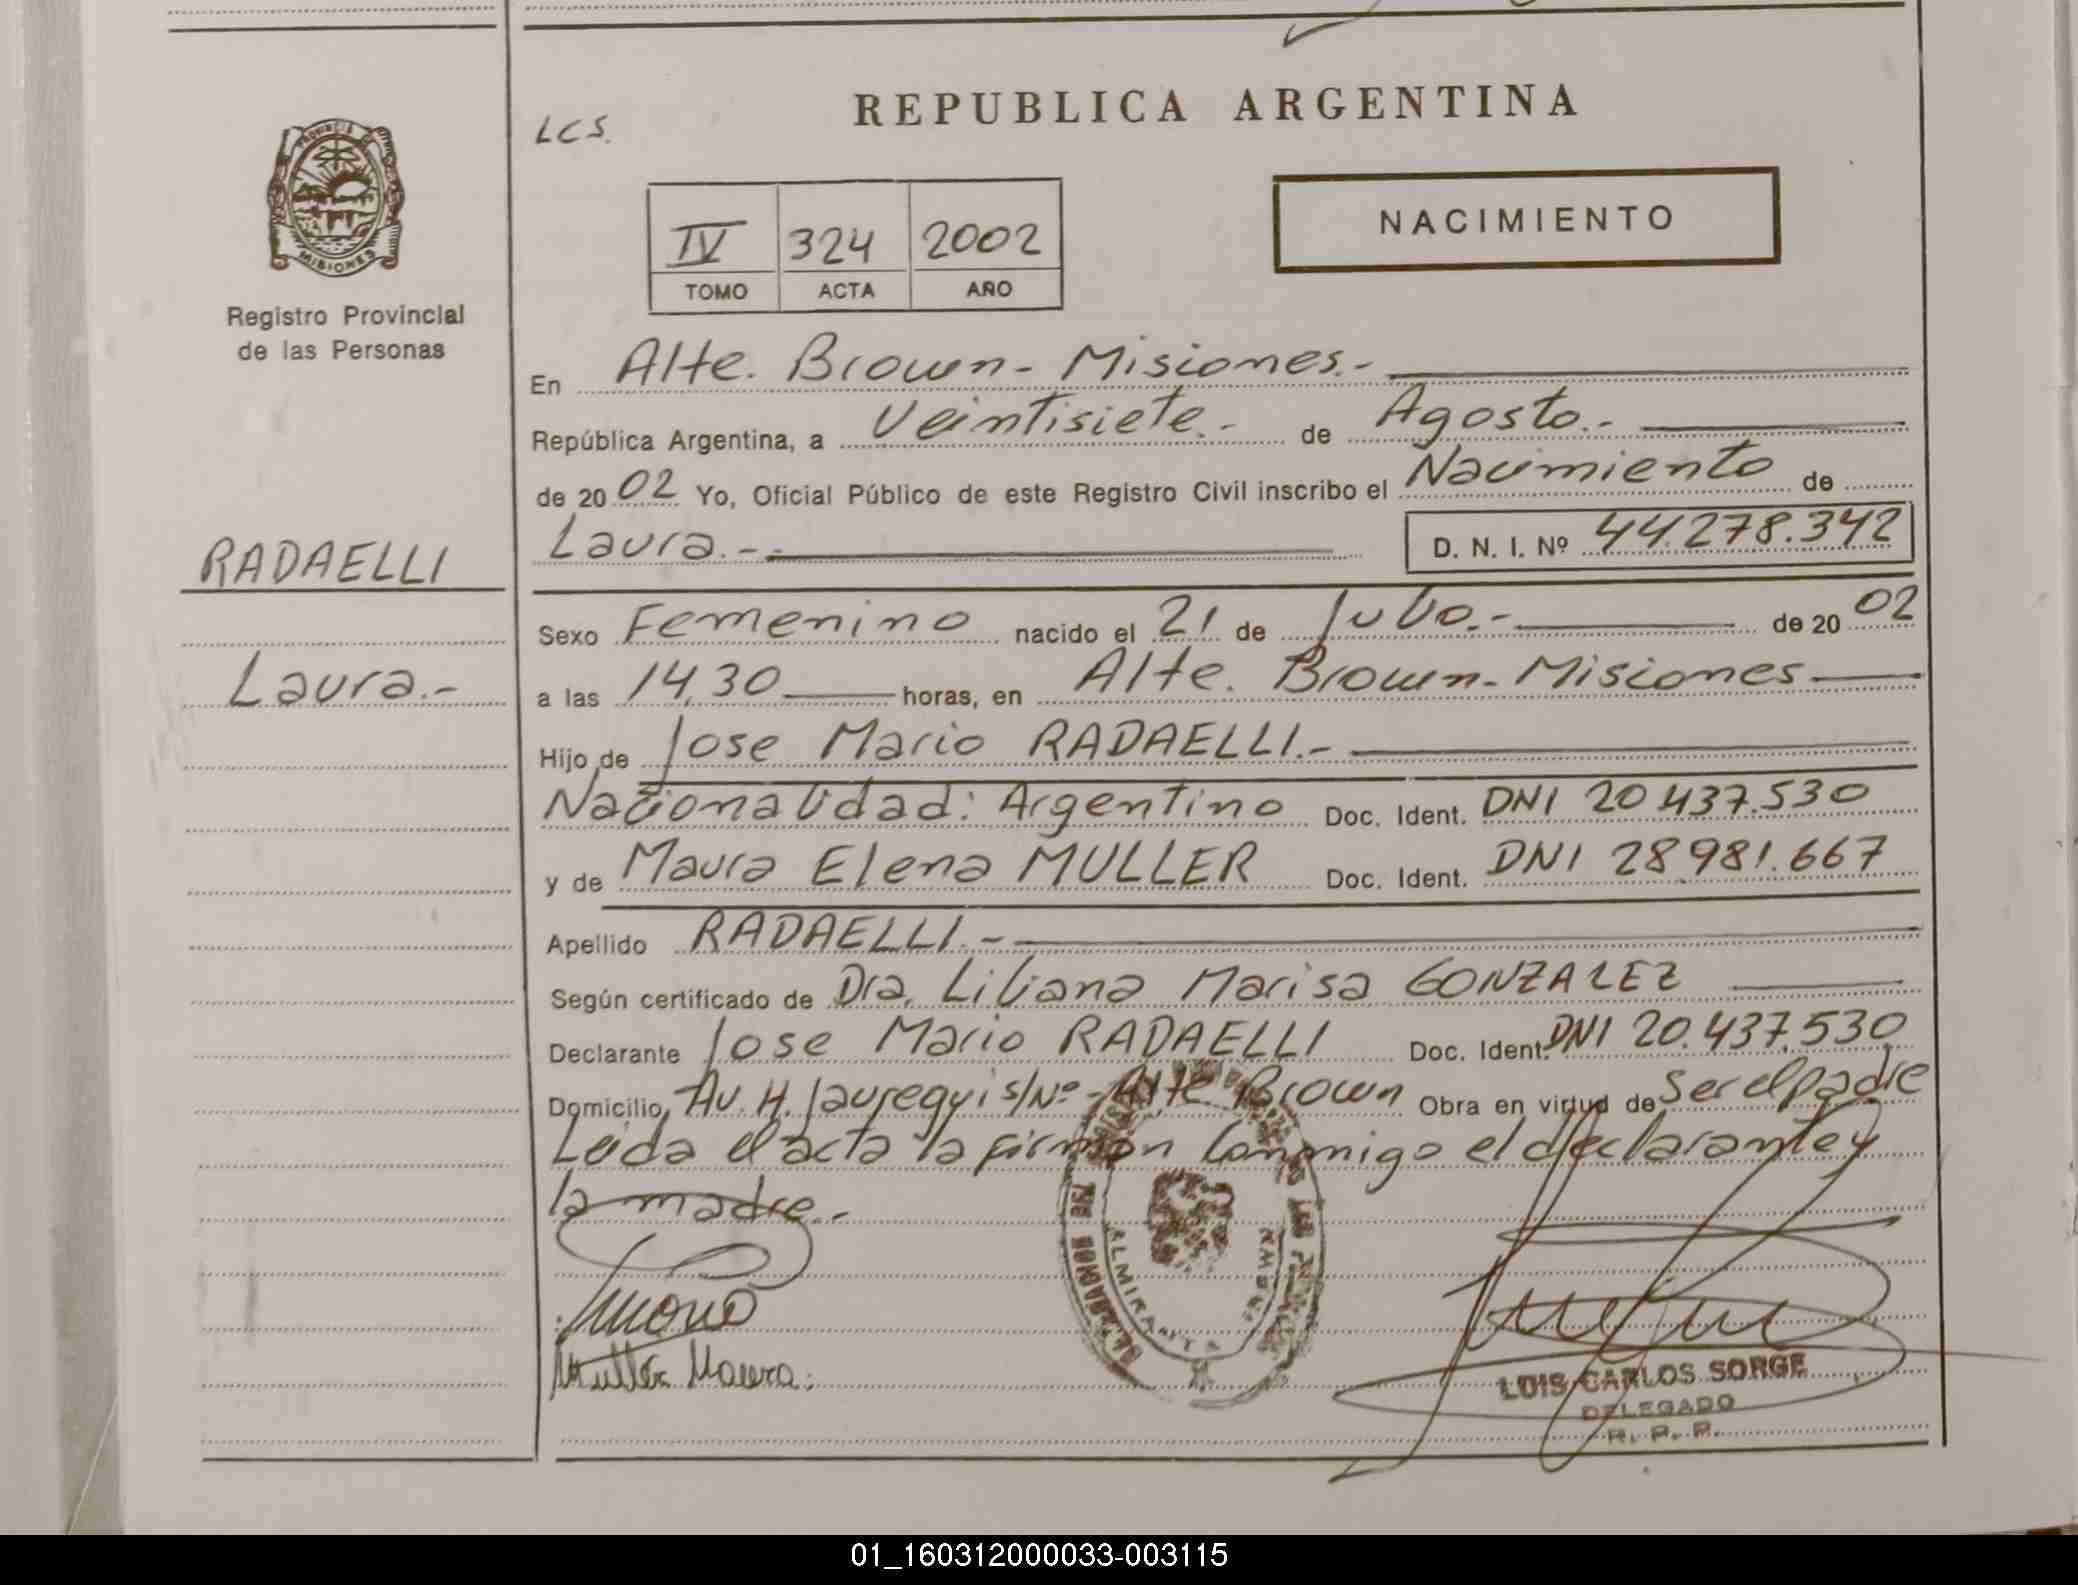 REPUBLICA ARGENTINA
LCS.
NACIMIENTO
IV 324 2002
TOMO ACTA AÑO
PROVINCIA DE
MISIONES
Registro Provincial
de las Personas
En Alte. Brown - Misiones.-
República Argentina, a Veintisiete.- de Agosto.-
de 20 02 Yo, Oficial Público de este Registro Civil inscribo el Nacimiento de
Laura.-- D. N. I. Nº 44.278.342
RADAELLI
Laura.-
Sexo Femenino nacido el 21 de Julio.- de 20 02
a las 14,30 horas, en Alte. Brown - Misiones
Hijo de Jose Mario RADAELLI.-
Nacionalidad: Argentino Doc. Ident. DNI 20.437.530
y de Maura Elena MULLER Doc. Ident. DNI 28.981.667
Apellido RADAELLI.-
Según certificado de Dra. Liliana Marisa GONZALEZ
Declarante Jose Mario RADAELLI Doc. Ident. DNI 20.437.530
Domicilio, Av. H. Jauregui s/Nº - Alte Brown Obra en virtud de Ser el padre
Leida el acta la firman Conmigo el declarante y
la madre.-
Muller Maura.
LUIS CARLOS SORGE
DELEGADO
R. P. P.
01_160312000033-003115